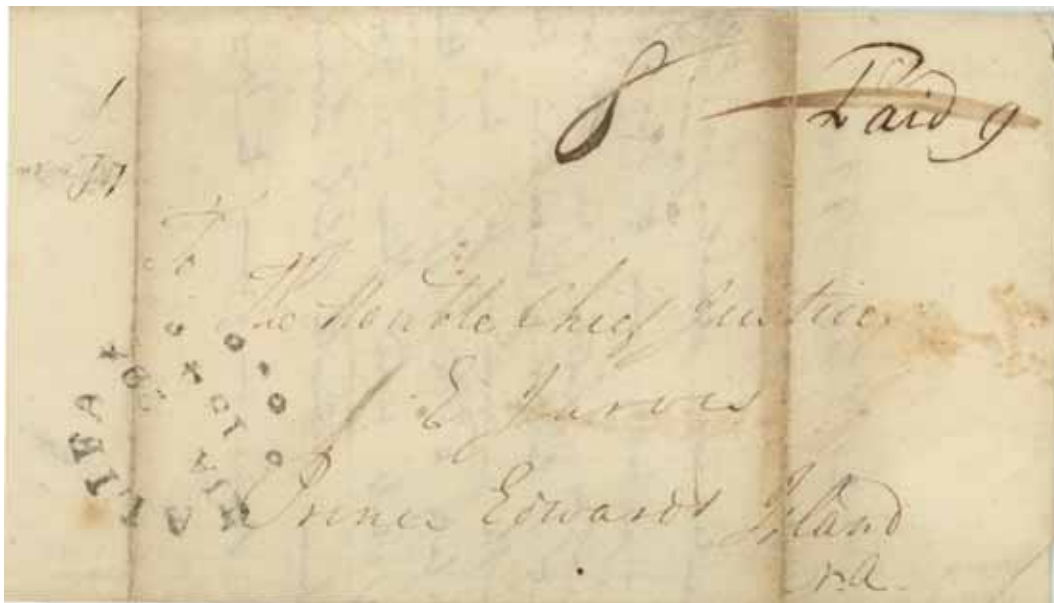 8 Paid 9
To
The Honble Chief Justice
E Jarvis
Prince Edwards Island
HALIFAX